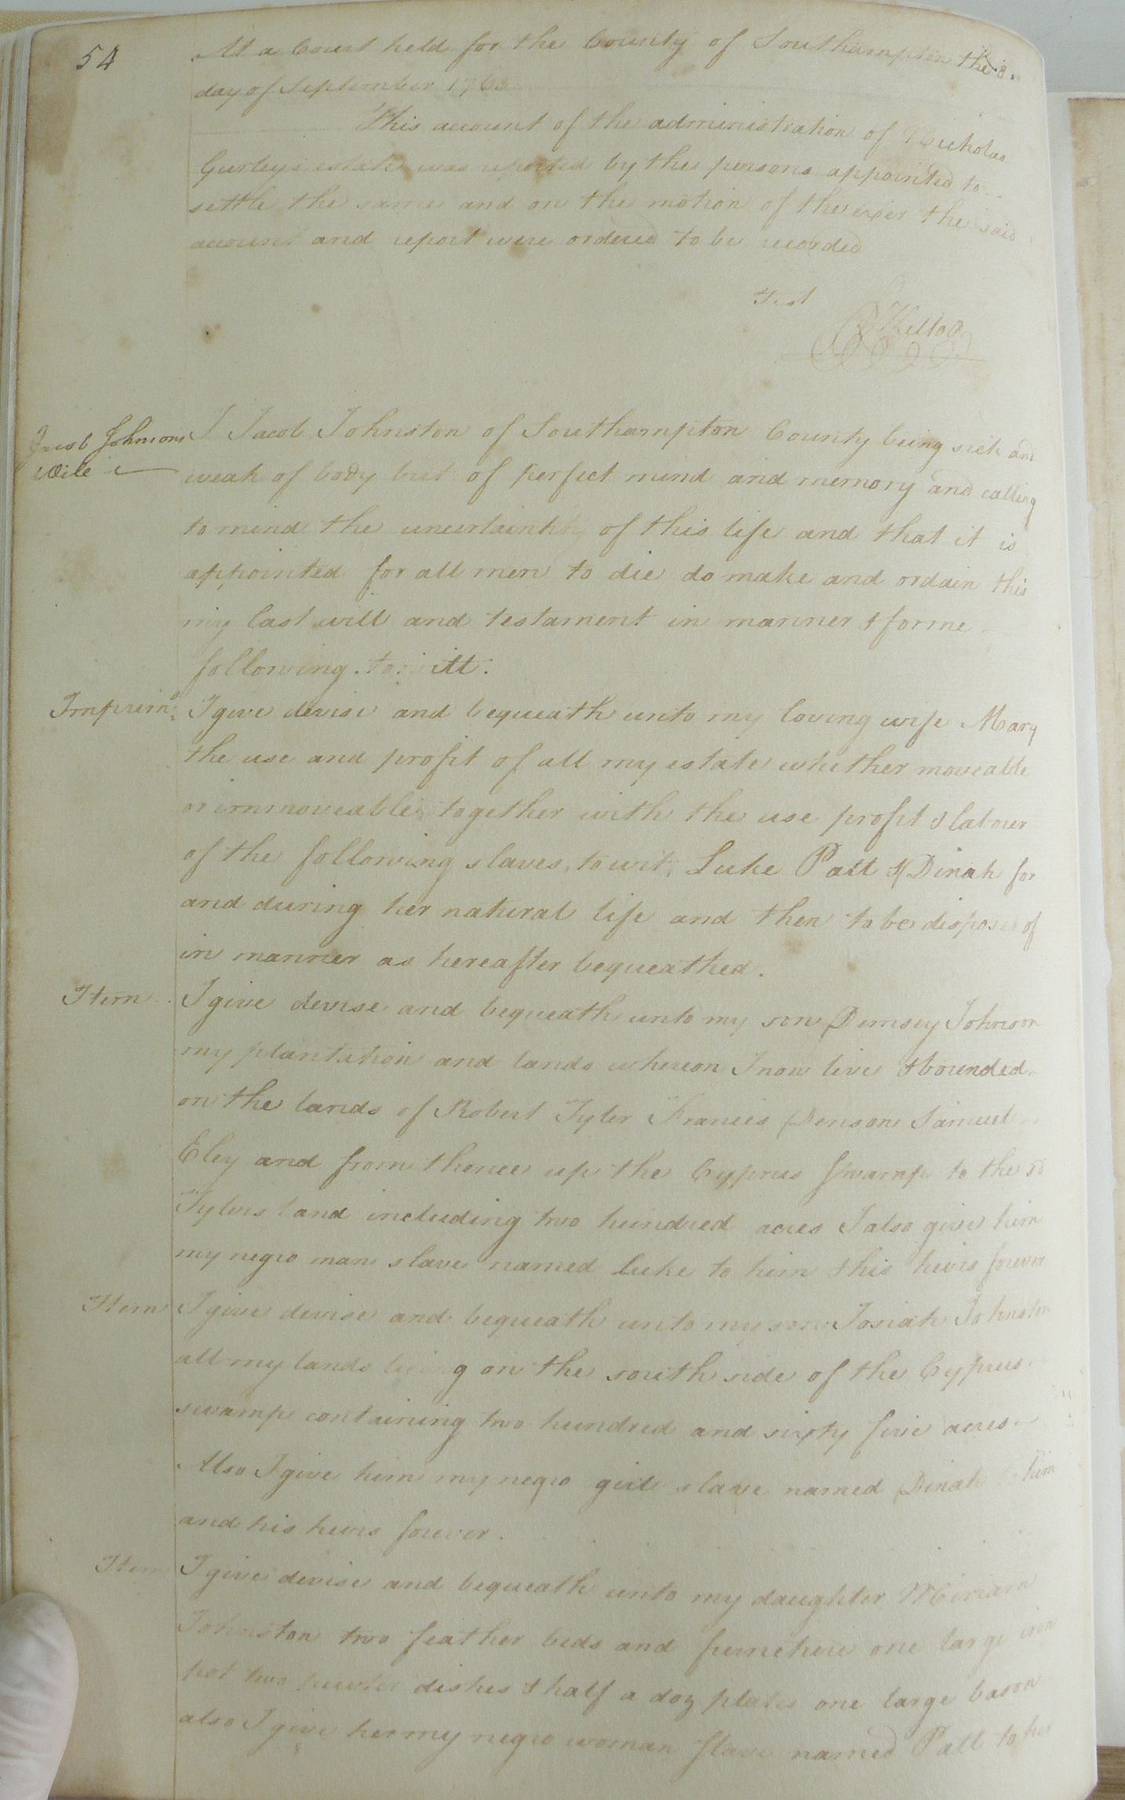 54
At a Court held for the County of Southampton the
day of September 176
This account of the administration of Nicholas
Gurleys estate was reported by the persons appointed to
settle the same and on the motion of the exer the said
account and report were ordered to be recorded
Test
Kello
Jacob Johnsons
Will
I Jacob Johnston of Southampton County being sick and
weak of body but of perfect mind and memory and calling
to mind the uncertainty of this life and that it is
appointed for all men to die do make and ordain this
my last will and testament in manner & forme
following. to witt:
Imprim:
I give devise and bequeath unto my loving wife Mary
the use and profit of all my estate whether moveable
or immoveable together with the use profit & labour
of the following slaves, to wit, Luke Patt & Dinah for
and during her natural life and then to be disposed of
in manner as hereafter bequeathed.
Item
I give devise and bequeath unto my son Demsey Johnson
my plantation and lands whereon I now live & bounded
on the lands of Robert Tyler Francis Denson Samuel
Eley and from thence up the Cyprus Swamp to the sd
Tylers land including two hundred acres I also give him
my negro man slave named Luke to him & his heirs forever
Item
I give devise and bequeath unto my son Josiah Johnston
all my lands being on the south side of the Cyprus
swamp containing two hundred and sixty five acres
Also I give him my negro girl slave named Dinah him
and his heirs forever.
Item
I give devise and bequeath unto my daughter Miriam
Johnston two feather beds and furneture one large iron
pot two pewter dishes & half a doz plates one large bason
also I give her my negro woman slave named Patt to her